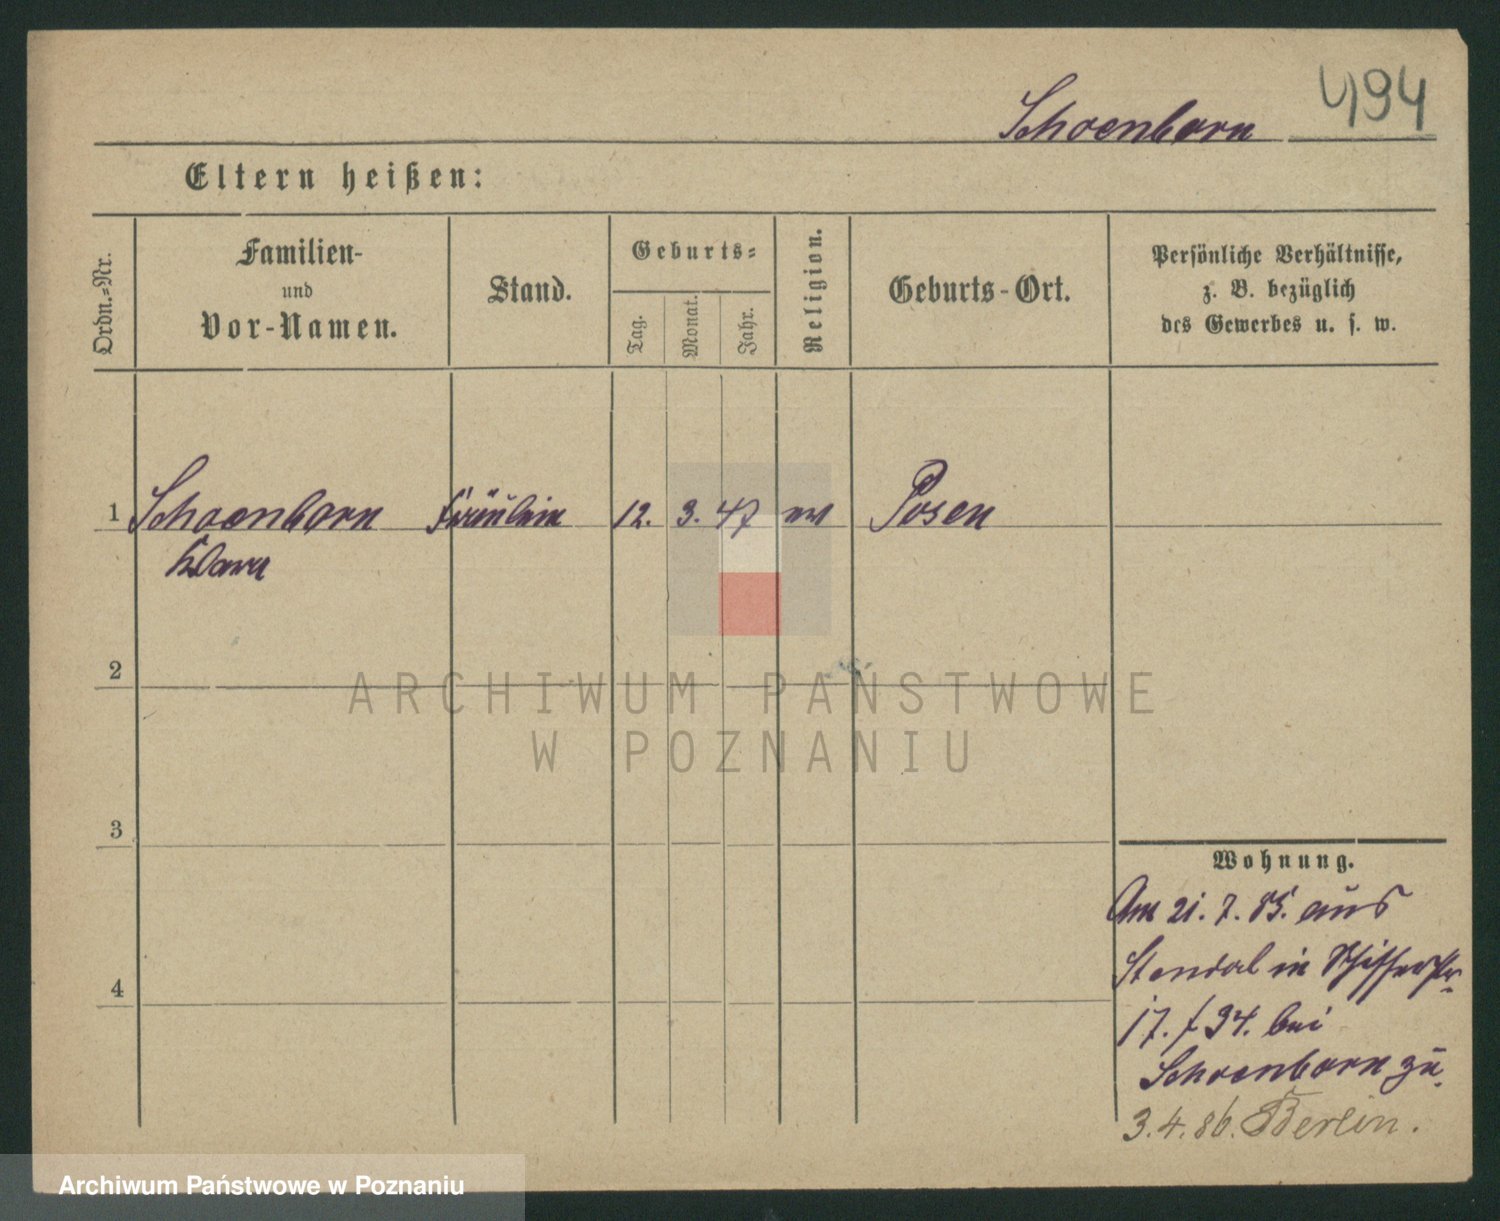 Schoenborn 494
Eltern heißen:
Ordn.=Nr.
Familien-
und
Vor-Namen.
Stand.
Geburts=
Tag.
Monat.
Jahr.
Religion.
Geburts-Ort.
Persönliche Verhältnisse,
z. B. bezüglich
des Gewerbes u. s. w.
1 Schoenborn Fräulein 12. 3. 47 Posen
Klara
2
ARCHIWUM PAŃSTWOWE
W POZNANIU
3
Wohnung.
Am 21. 7. 85. aus
Stendal in
4
17. / 34. bei
Schoenborn zu.
3. 4. 86. Berlin.
Archiwum Państwowe w Poznaniu